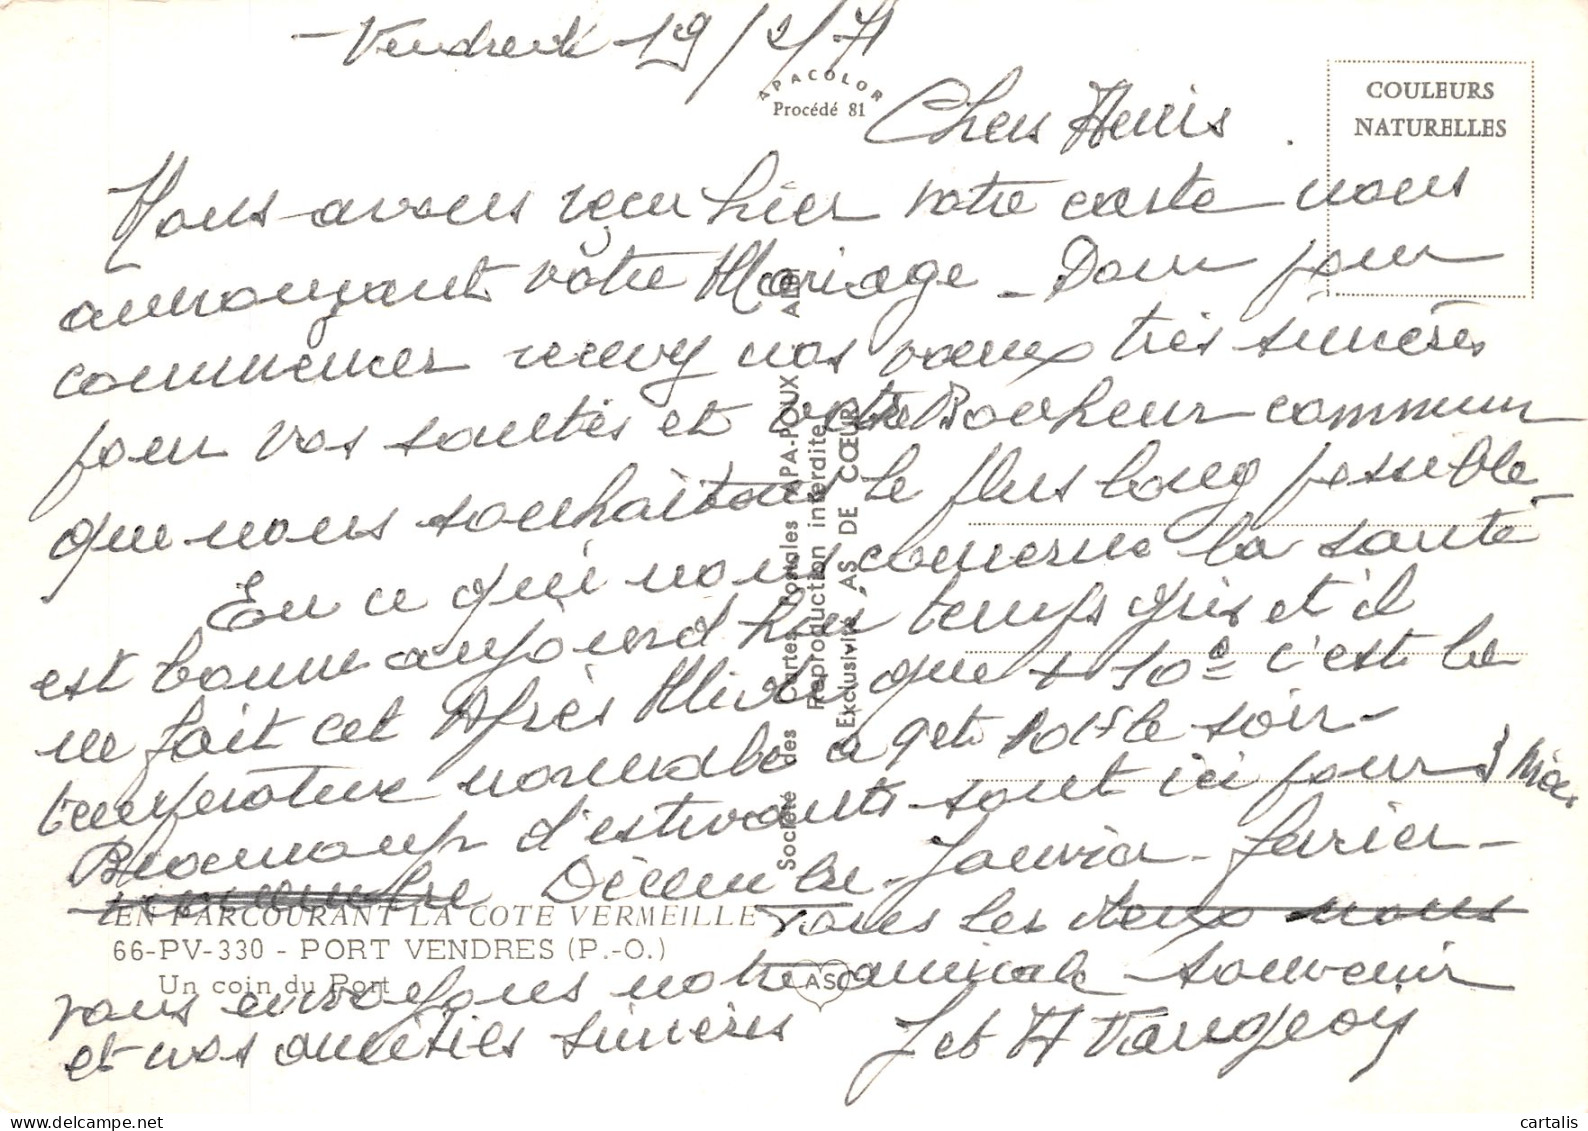 — Vendredi 19/2/71
APACOLOR
Procédé 81
COULEURS
NATURELLES
Chers Amis
Nous avons reçu hier votre carte nous
annonçant vôtre Mariage – Donc pour
commencer recevez nos vœux très sincères
pour vos santés et votre Bonheur commun
que nous souhaitons le plus long possible
En ce qui nous concerne la santé
est bonne aujourd'hui temps gris et il
ne fait cet Après Midi que + 10° c'est la
température normale à 9 le soir –
Beaucoup d'estivants sont ici pour 3 Mois
Décembre – Janvier – Février –
Tous les deux
vous envoyons notre amicale souvenir
et nos amitiés sincères
J et H
Société des Cartes Postales APA-POUX ALBI
Reproduction interdite
Exclusivité "AS DE CŒUR"
EN PARCOURANT LA COTE VERMEILLE
66-PV-330 - PORT VENDRES (P.-O.)
Un coin du Port
ASC
cartalis